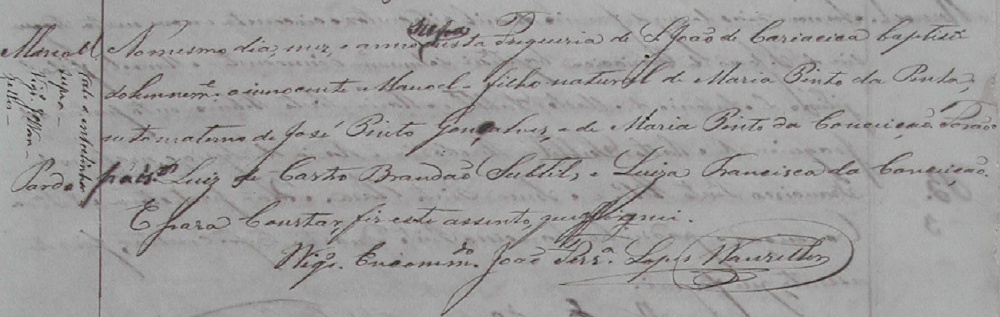 Manoel
Pardo
Vale a entrelinha
supra
Vigr.o
No mesmo dia, mez, e anno supra nesta Freguezia de S. João de Cariacica baptisei
solemnem.e o innocente Manoel – filho natural de Maria Pinto da Penha,
neto materno de José Pinto Gonçalves, e de Maria Pinto da Conceição. Forão
pad.os Luiz de Castro Brandão Subtil, e Luiza Francisca da Conceição.
E para Constar, fiz este assento, que assignei.
Vigr.o Encomm.do João Ferr.a Lopes Wanzeller